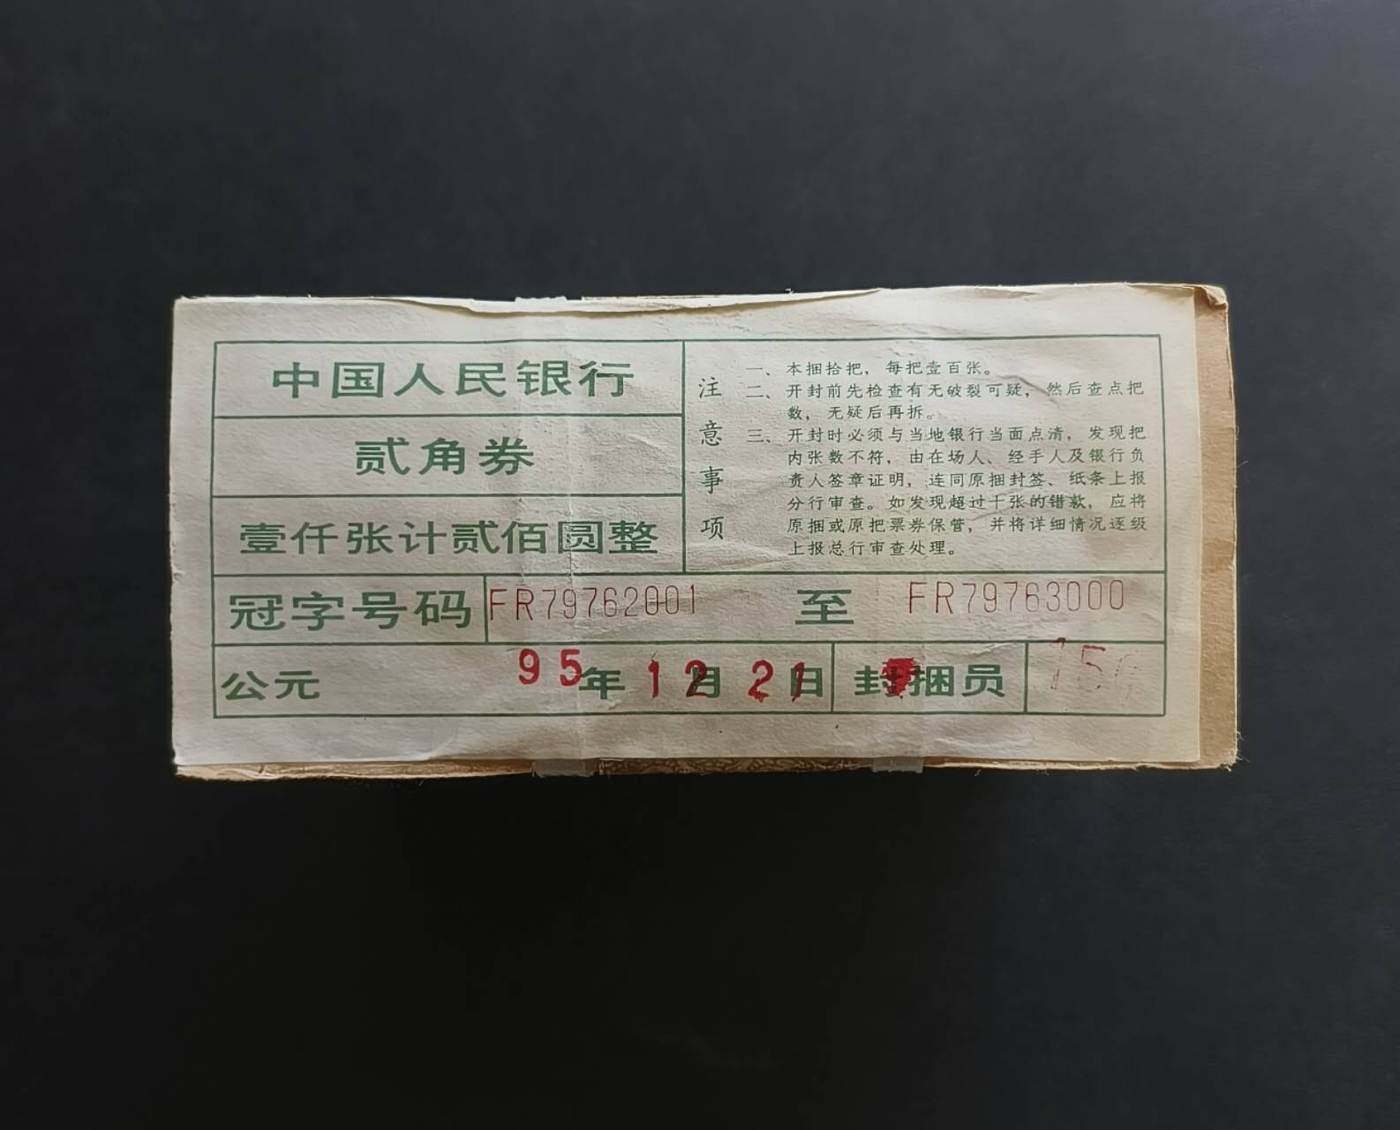 中国人民银行
贰角券
壹仟张计贰佰圆整
注意事项
一、本捆拾把，每把壹百张。
二、开封前先检查有无破裂可疑，然后查点把
数，无疑后再拆。
三、开封时必须与当地银行当面点清，发现把
内张数不符，由在场人、经手人及银行负
责人签章证明，连同原捆封签、纸条上报
分行审查。如发现超过十张的错款，应将
原捆或原把票券保管，并将详细情况逐级
上报总行审查处理。
冠字号码 FR79762001 至 FR79763000
公元 95年12月21日 封捆员